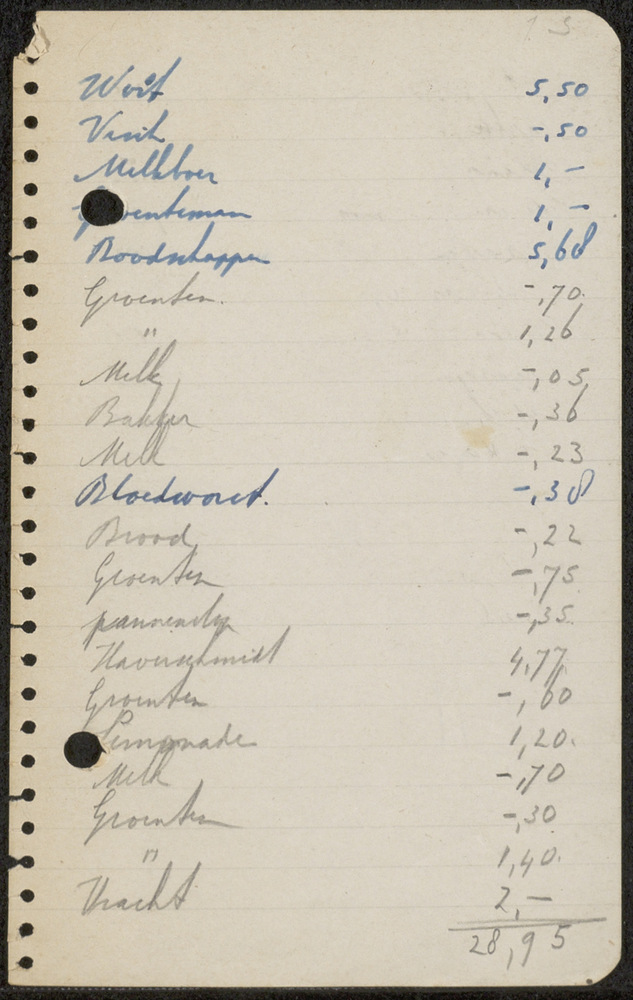 13
Worst 5,50
Visch -,50
Melkboer 1,-
Groenteman 1,-
Boodschappen 5,68
Groenten. -,70
" 1,26
Melk -,05
Bakker -,36
Melk -,23
Bloedworst. -,38
Brood -,22
Groenten -,75
-,35
Haverschmidt 4,77
Groenten -,60
Limonade 1,20.
Melk -,70
Groenten -,30
" 1,40.
Vracht 2,-
28,95